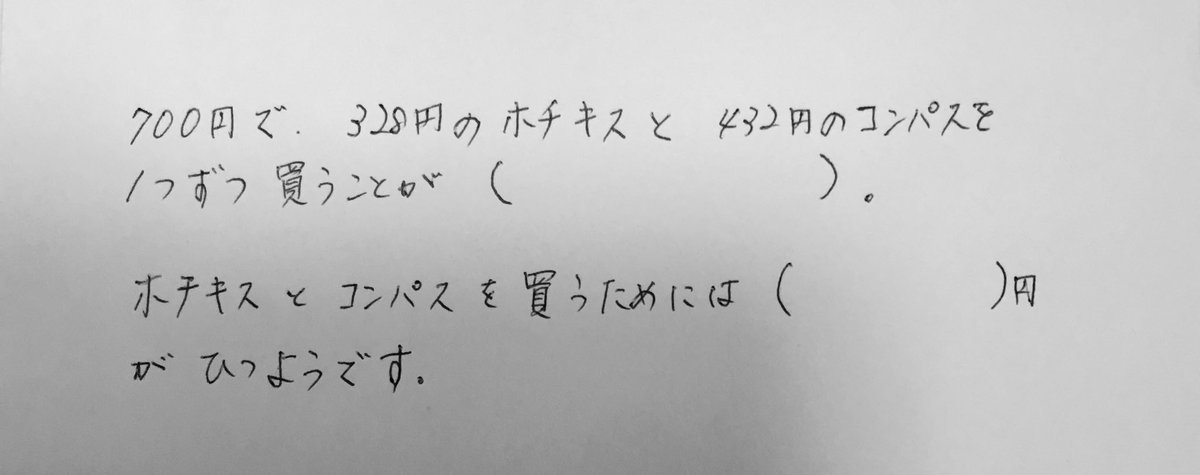 700円で、328円のホチキスと432円のコンパスを
1つずつ買うことが(　　　　　)。
ホチキスとコンパスを買うためには(　　　　　)円
がひつようです。